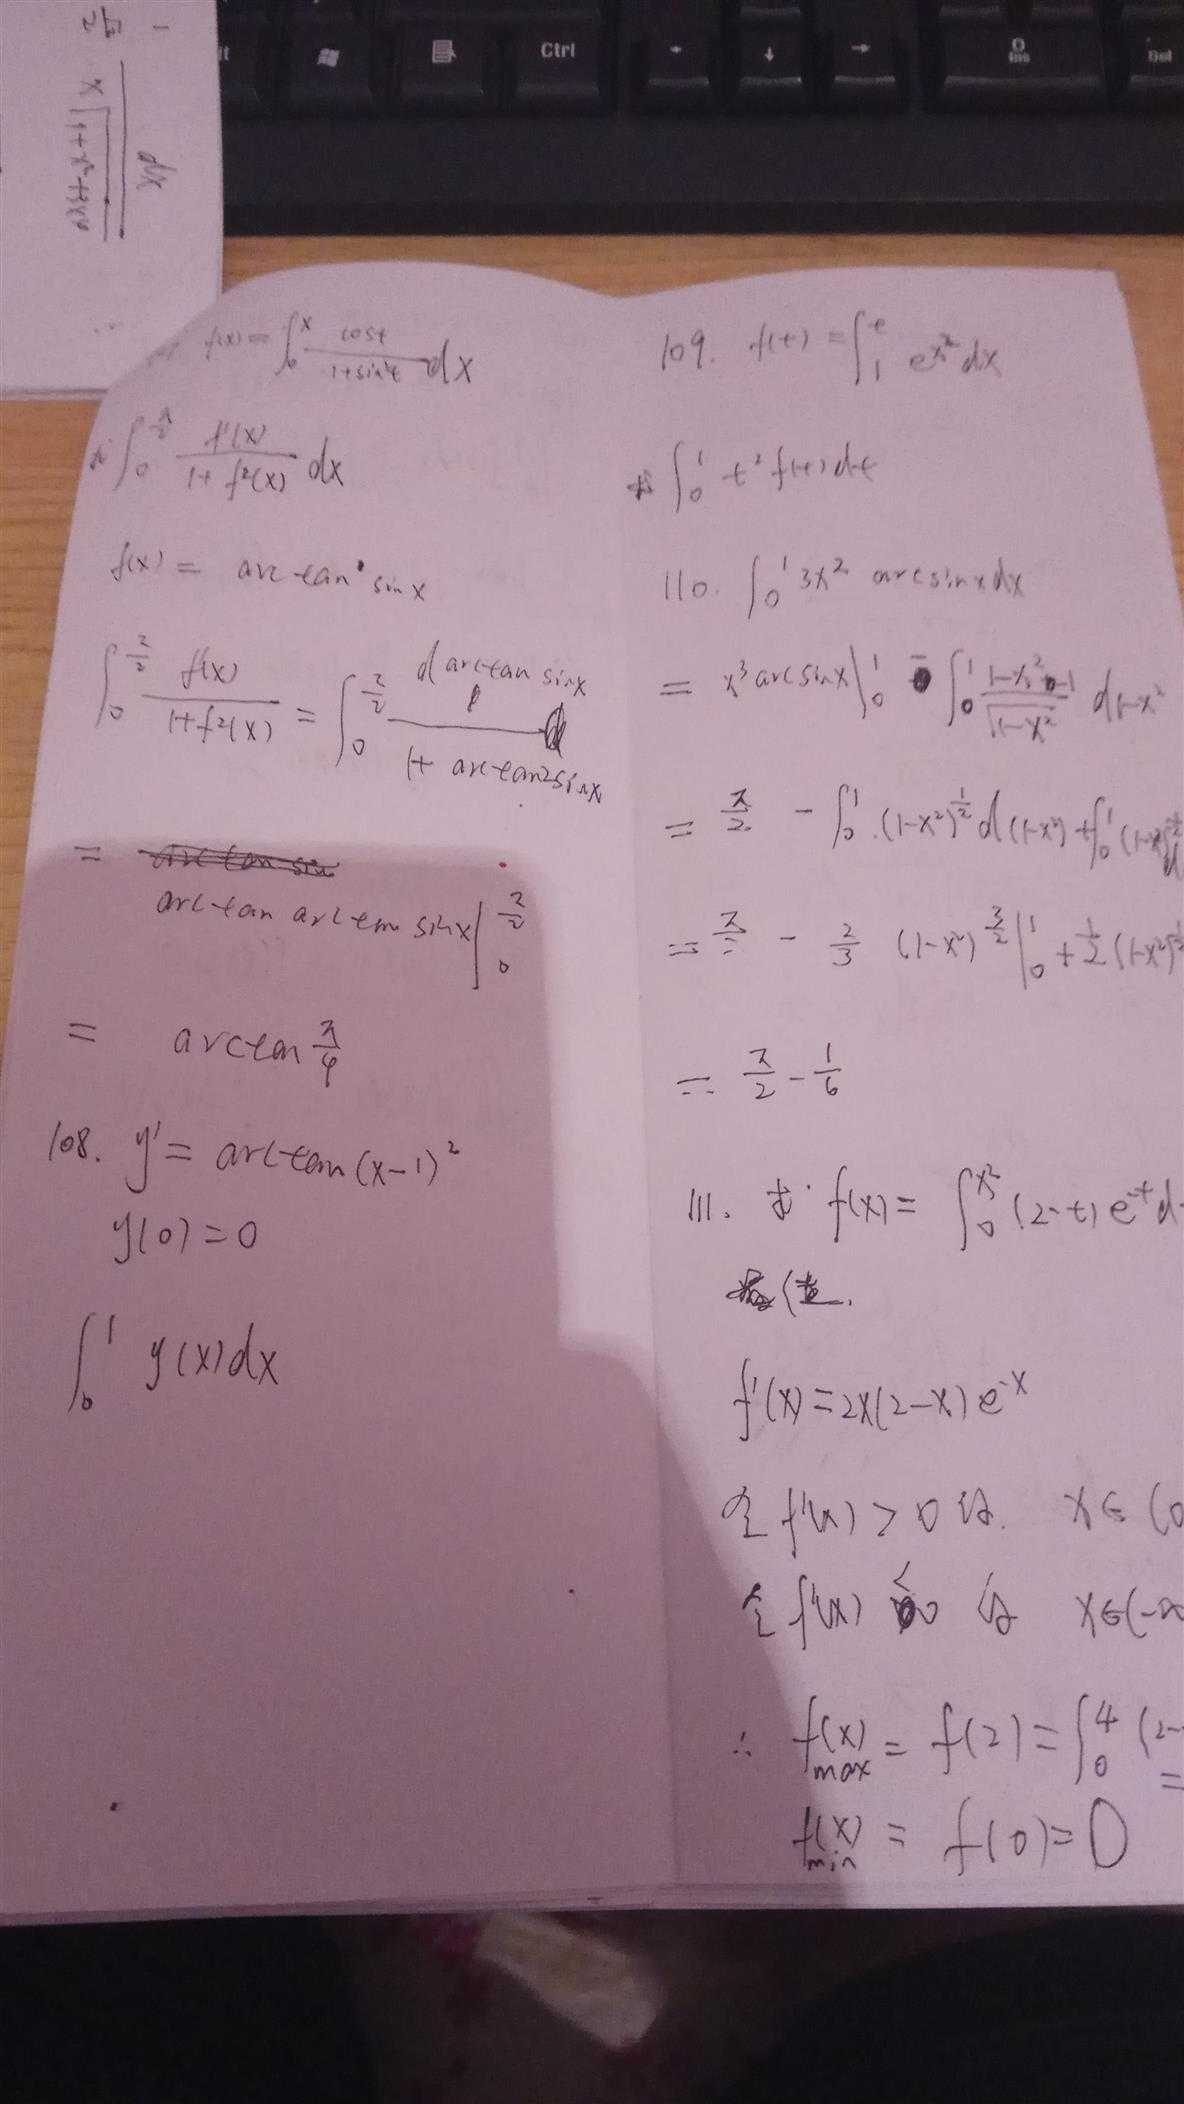 Ctrl
Ins
Del
dx
f(x) = ∫₀ˣ cost / 1+sin²t dx
求 ∫₀^(π/2) f'(x) / 1+f²(x) dx
f(x) = arctan sinx
∫₀^(π/2) f'(x) / 1+f²(x) = ∫₀^(π/2) d arctan sinx / 1+ arctan²sinx
=
arctan arctan sinx |₀^(π/2)
= arctan π/4
108. y' = arctan(x-1)²
y(0) = 0
∫₀¹ y(x)dx
109. f(t) = ∫₁ᵗ e^(x²) dx
求 ∫₀¹ t² f(t) dt
110. ∫₀¹ 3x² arcsinx dx
= x³ arcsinx |₀¹ - ∫₀¹ 1-x²-1 / √(1-x²) d1-x²
= π/2 - ∫₀¹ (1-x²)^(1/2) d(1-x²) + ∫₀¹ (1-x²)
= π/2 - 2/3 (1-x²)^(3/2) |₀¹ + 1/2 (1-x²)
= π/2 - 1/6
111. 求 f(x) = ∫₀^(x²) (2-t) e^(-t) d
值.
f'(x) = 2x(2-x) e^(-x)
令 f'(x) > 0 得 x∈(0
令 f'(x) < 0 得 x∈(-∞
∴ f(x) max = f(2) = ∫₀⁴ (2-
=
f(x) min = f(0) = 0